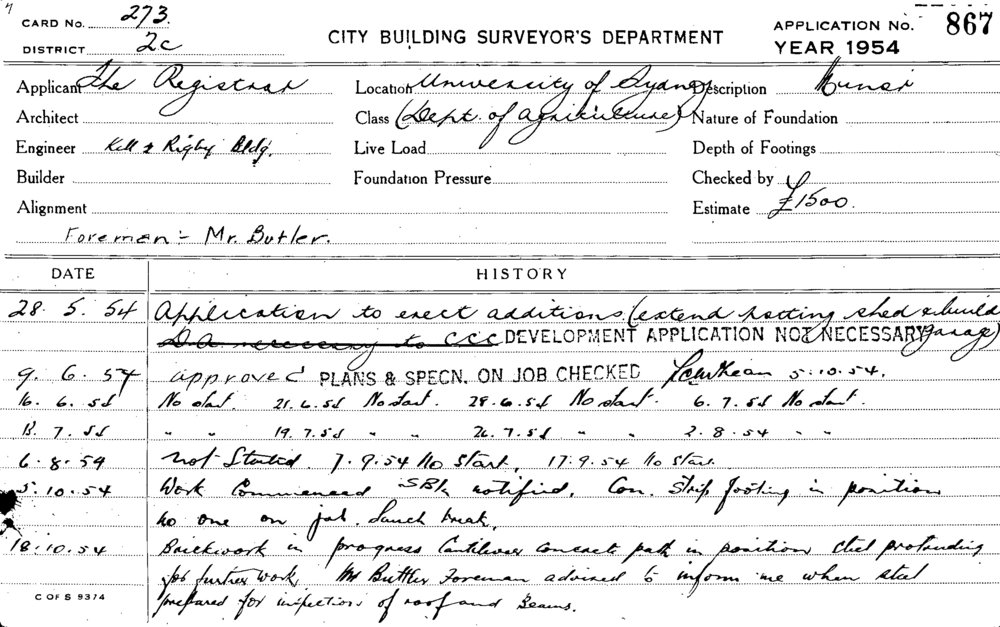 CARD NO. 273.
DISTRICT 2c
CITY BUILDING SURVEYOR'S DEPARTMENT
APPLICATION NO. 867
YEAR 1954
Applicant The Registrar
Location University of Sydney
Description Minor
Architect
Class (Dept. of Agriculture)
Nature of Foundation
Engineer Kell & Rigby Bldg.
Live Load
Depth of Footings
Builder
Foundation Pressure
Checked by
Alignment
Estimate £1500.
Foreman:- Mr. Butler.
DATE HISTORY
28. 5. 54 Application to erect additions (extend potting shed & build
D.A. necessary to CCC DEVELOPMENT APPLICATION NOT NECESSARY garage)
9. 6. 54 approved PLANS & SPECN. ON JOB CHECKED 5.10.54.
16. 6. 54 No start. 21.6.54 No start. 28.6.54 No start. 6.7.54 No start.
13. 7. 54 " " 19.7.54 " " 26.7.54 " " 2.8.54 " "
6. 8. 54 Not Started. 7.9.54 No Start, 17.9.54 No Start.
5.10.54 Work Commenced notified. Con. Strip footing in position
no one on job. Lunch break.
18.10.54 Brickwork in progress Cantilever concrete path in position steel protruding
for further work. Mr Buttler Foreman advised to inform me when steel
prepared for inspection of roof and Beams.
C OF S 9374